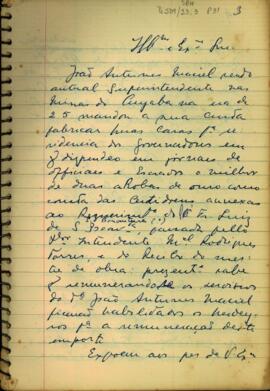 SBH
3
Illmo e Exmo Snr.
João Antunes Maciel sendo
actual Superintendente nas
minas do Cuyaba no na de
25 mandou a sua custa
fabricar huas Casas pa re
zidencia dos Governadores em
q dispendeo em jornaes de
officiaes e Escravos o melhor
de duas aRobas de ouro como
consta das Certidoens annexas
ao Requerimto do Pe Fr. Luiz
de S. passada pello
Dor Intendente Mel Rodrigues
Torres, e do Recibo do mes
tre da obra: prezente sabe
q remunerandose os servisos
do dº João Antunes Maciel
ficarão habilitados os
ros pa a remuneração desta
importe.
Expoem aos pes de V. Exa